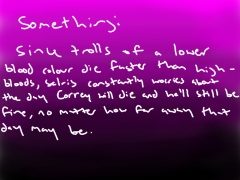 Something:
Sinu trolls of a lower
blood colour die faster than high-
bloods, Sel-is constantly worries about
the day Correy will die and he'll still be
fine, no matter how far away that
day may be.